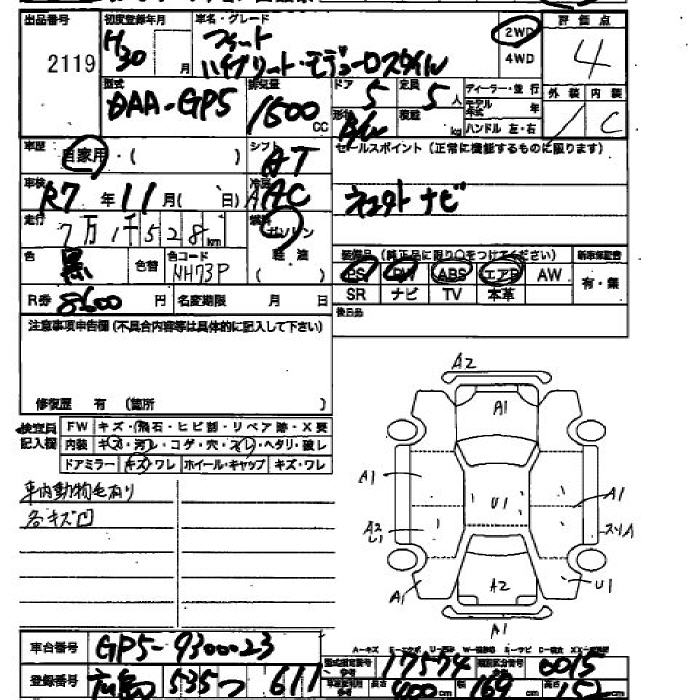 出品番号 2119
初度登録年月 H30 月
車名・グレード フィット
ハイブリット・モデューロスタイル
2WD
4WD
評価点 4
外装 内装 C
型式 DAA-GP5
排気量 1500 cc
ドア 5 定員 5 人
形状 積載 kg
ディーラー・並行
モデル年式 年
ハンドル 左・右
車歴 自家用・( )
シフト AT
セールスポイント (正常に機能するものに限ります)
ナビ
車検 R7年11月( 日)
冷房 AC
走行 7万1千528km
燃料 ガソリン
軽油
色 黒 色替 色コード NH73P
装備品 (純正品に限り○をつけてください)
PS PW ABS エアB AW
SR ナビ TV 本革
有・無
後日品
R券 8600円 名変期限 月 日
注意事項申告欄 (不具合内容等は具体的に記入して下さい)
修復歴 有 (箇所 )
検査員記入欄
FW キズ・飛石・ヒビ割・リペア跡・X要
内装 キズ・汚レ・コゲ・穴・スレ・ヘタリ・破レ
ドアミラー キズ・ワレ ホイール・キャップ キズ・ワレ
車内動物毛有り
各キズ凹
A2
A1
A1
U1
A1
A2
U1
A1
A2
A1
U1
A1
車台番号 GP5-9300023
登録番号 広島 535 つ 611
型式指定番号 17574 類別区分番号 0015
長さ 400cm 幅 169cm 高さ 152cm